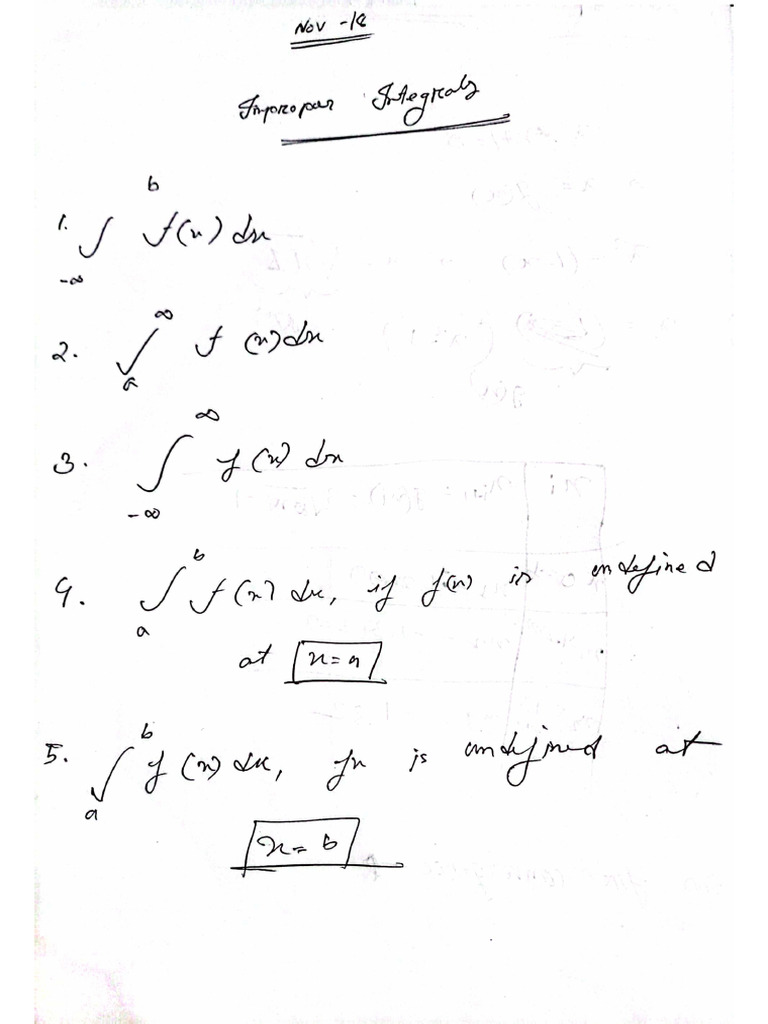 Nov -18
Improper Integrals
1. ∫_{-∞}^{b} f(x) dx
2. ∫_{a}^{∞} f (x) dx
3. ∫_{-∞}^{∞} f (x) dx
4. ∫_{a}^{b} f(x) dx, if f(x) is undefined
at x=a
5. ∫_{a}^{b} f(x) dx, fx is undefined at
x= b